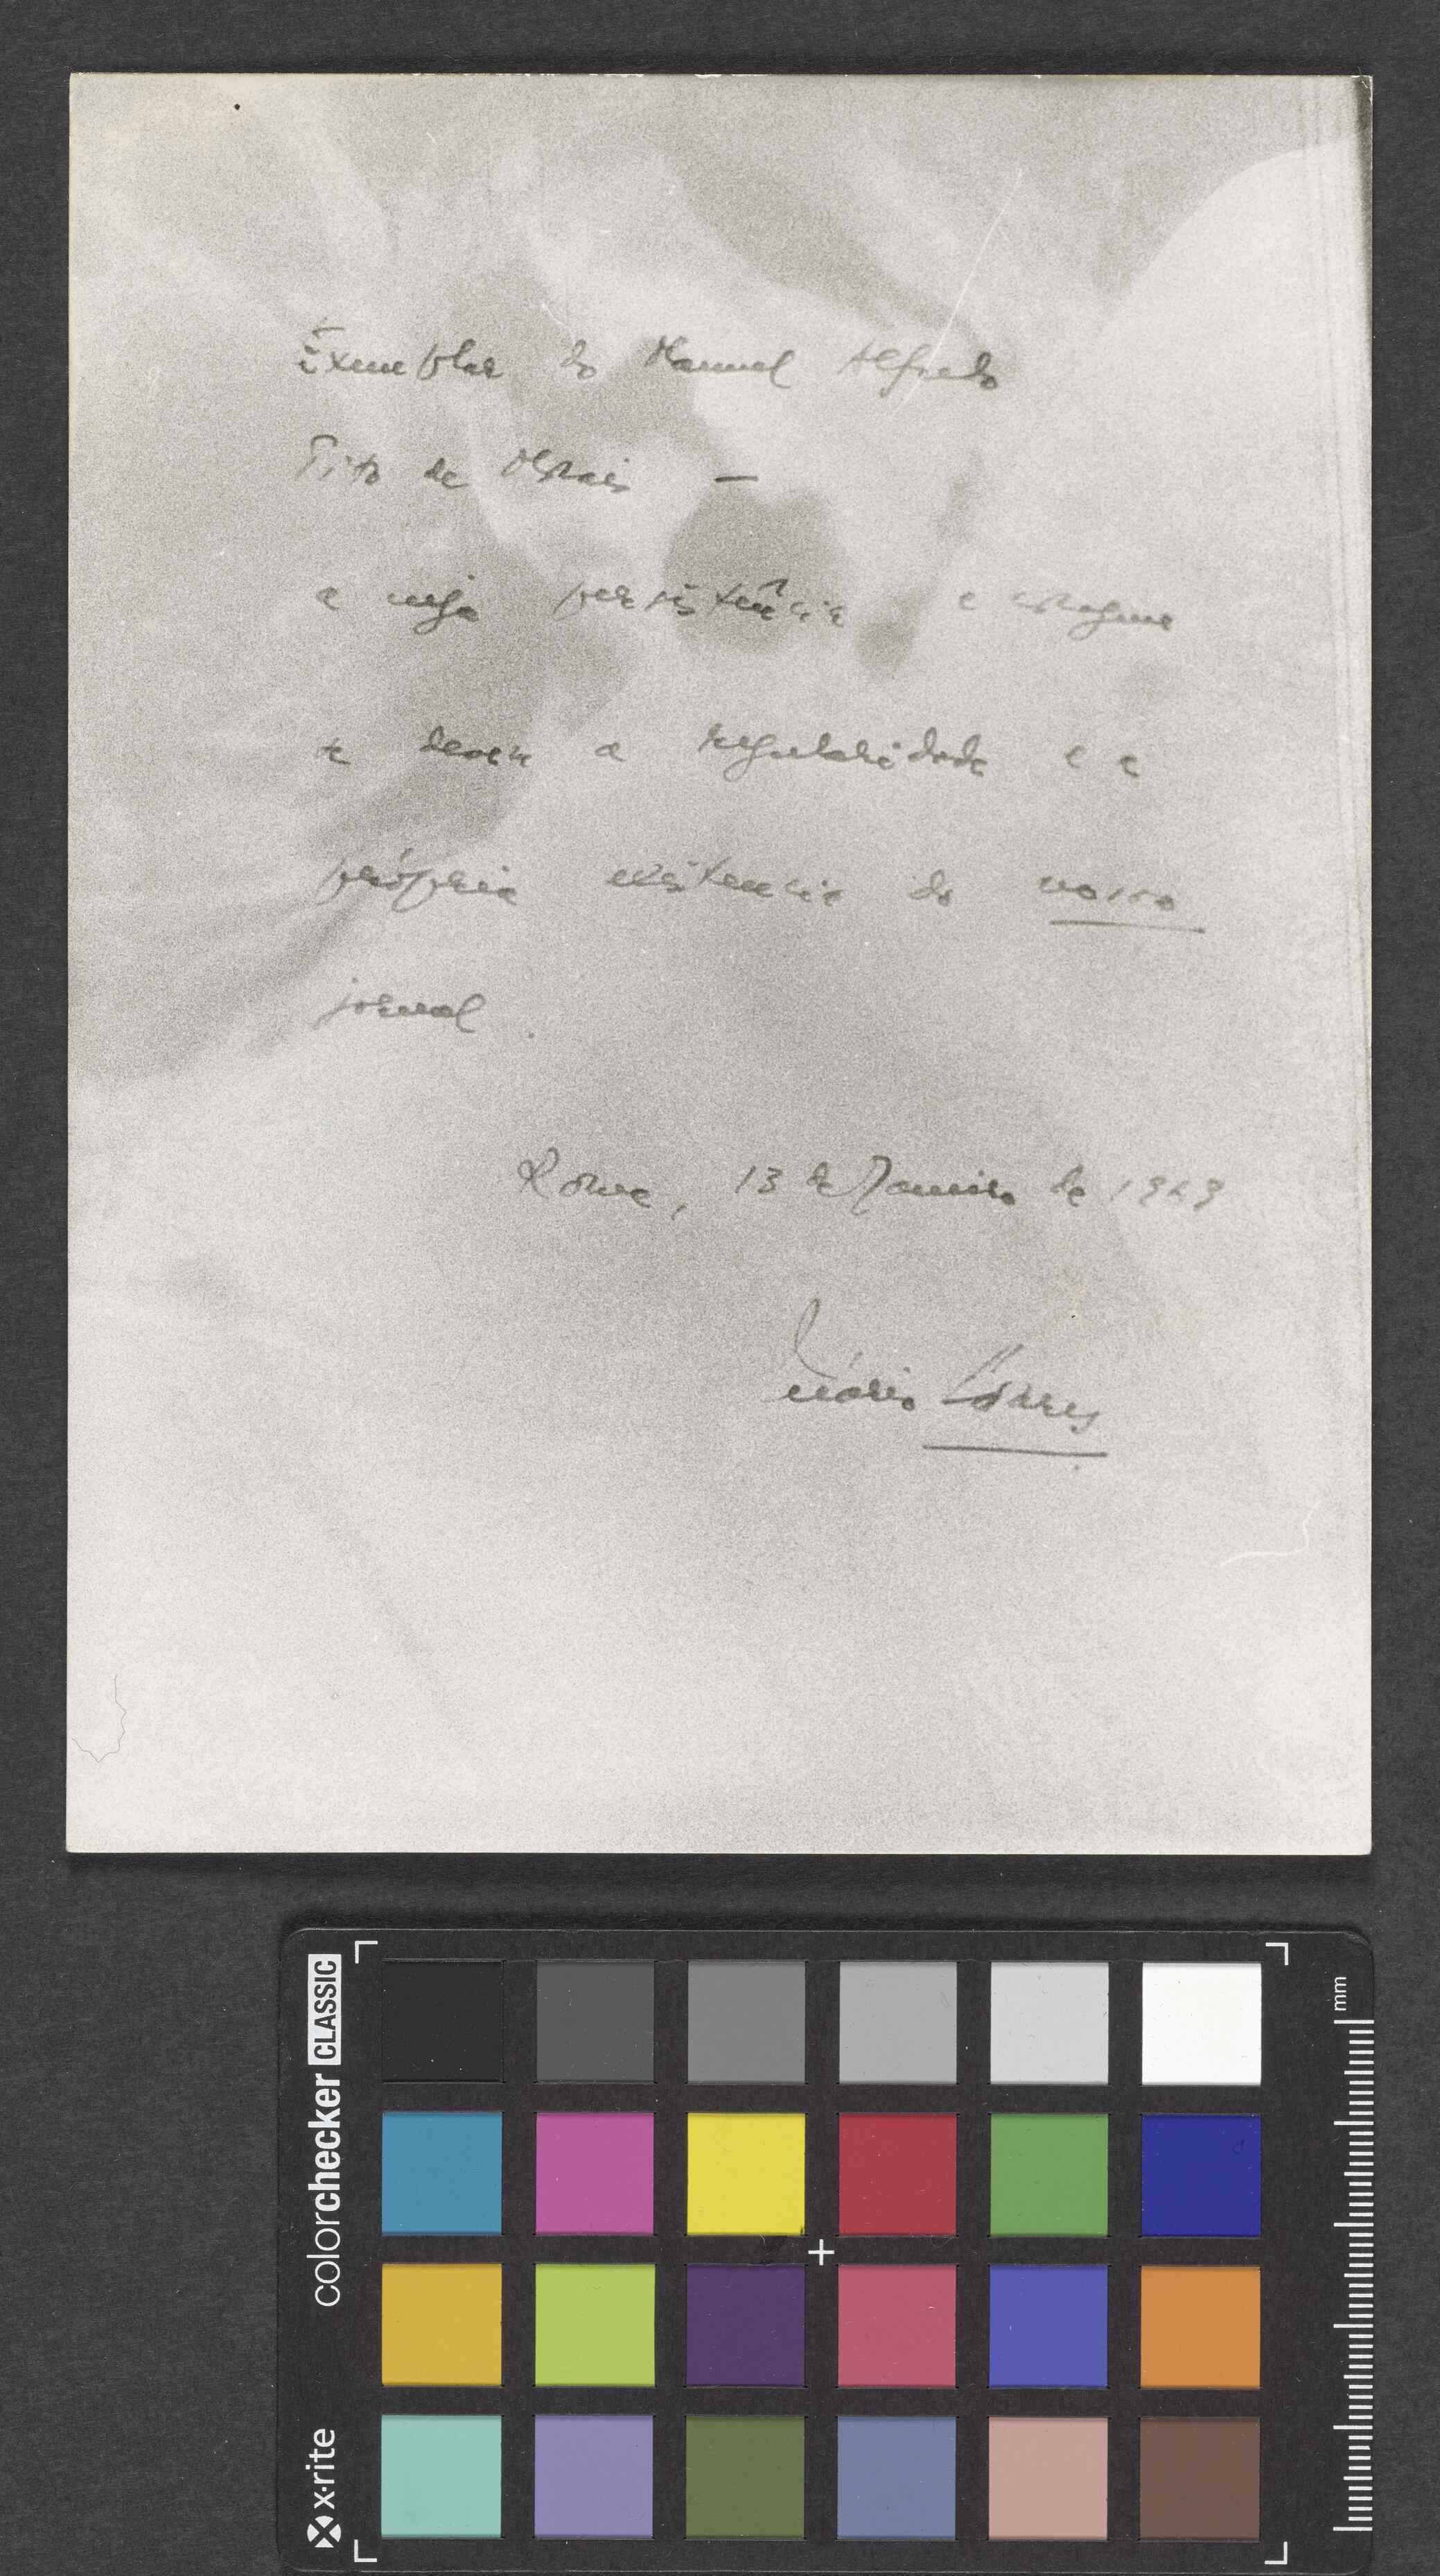 Exemplar do Manuel Alfredo
Tito de Morais —
a cuja persistência e coragem
se devem a regularidade e a
própria existencia do nosso
jornal.
Roma, 13 de Janeiro de
Mário Soares
colorchecker CLASSIC
x-rite
mm